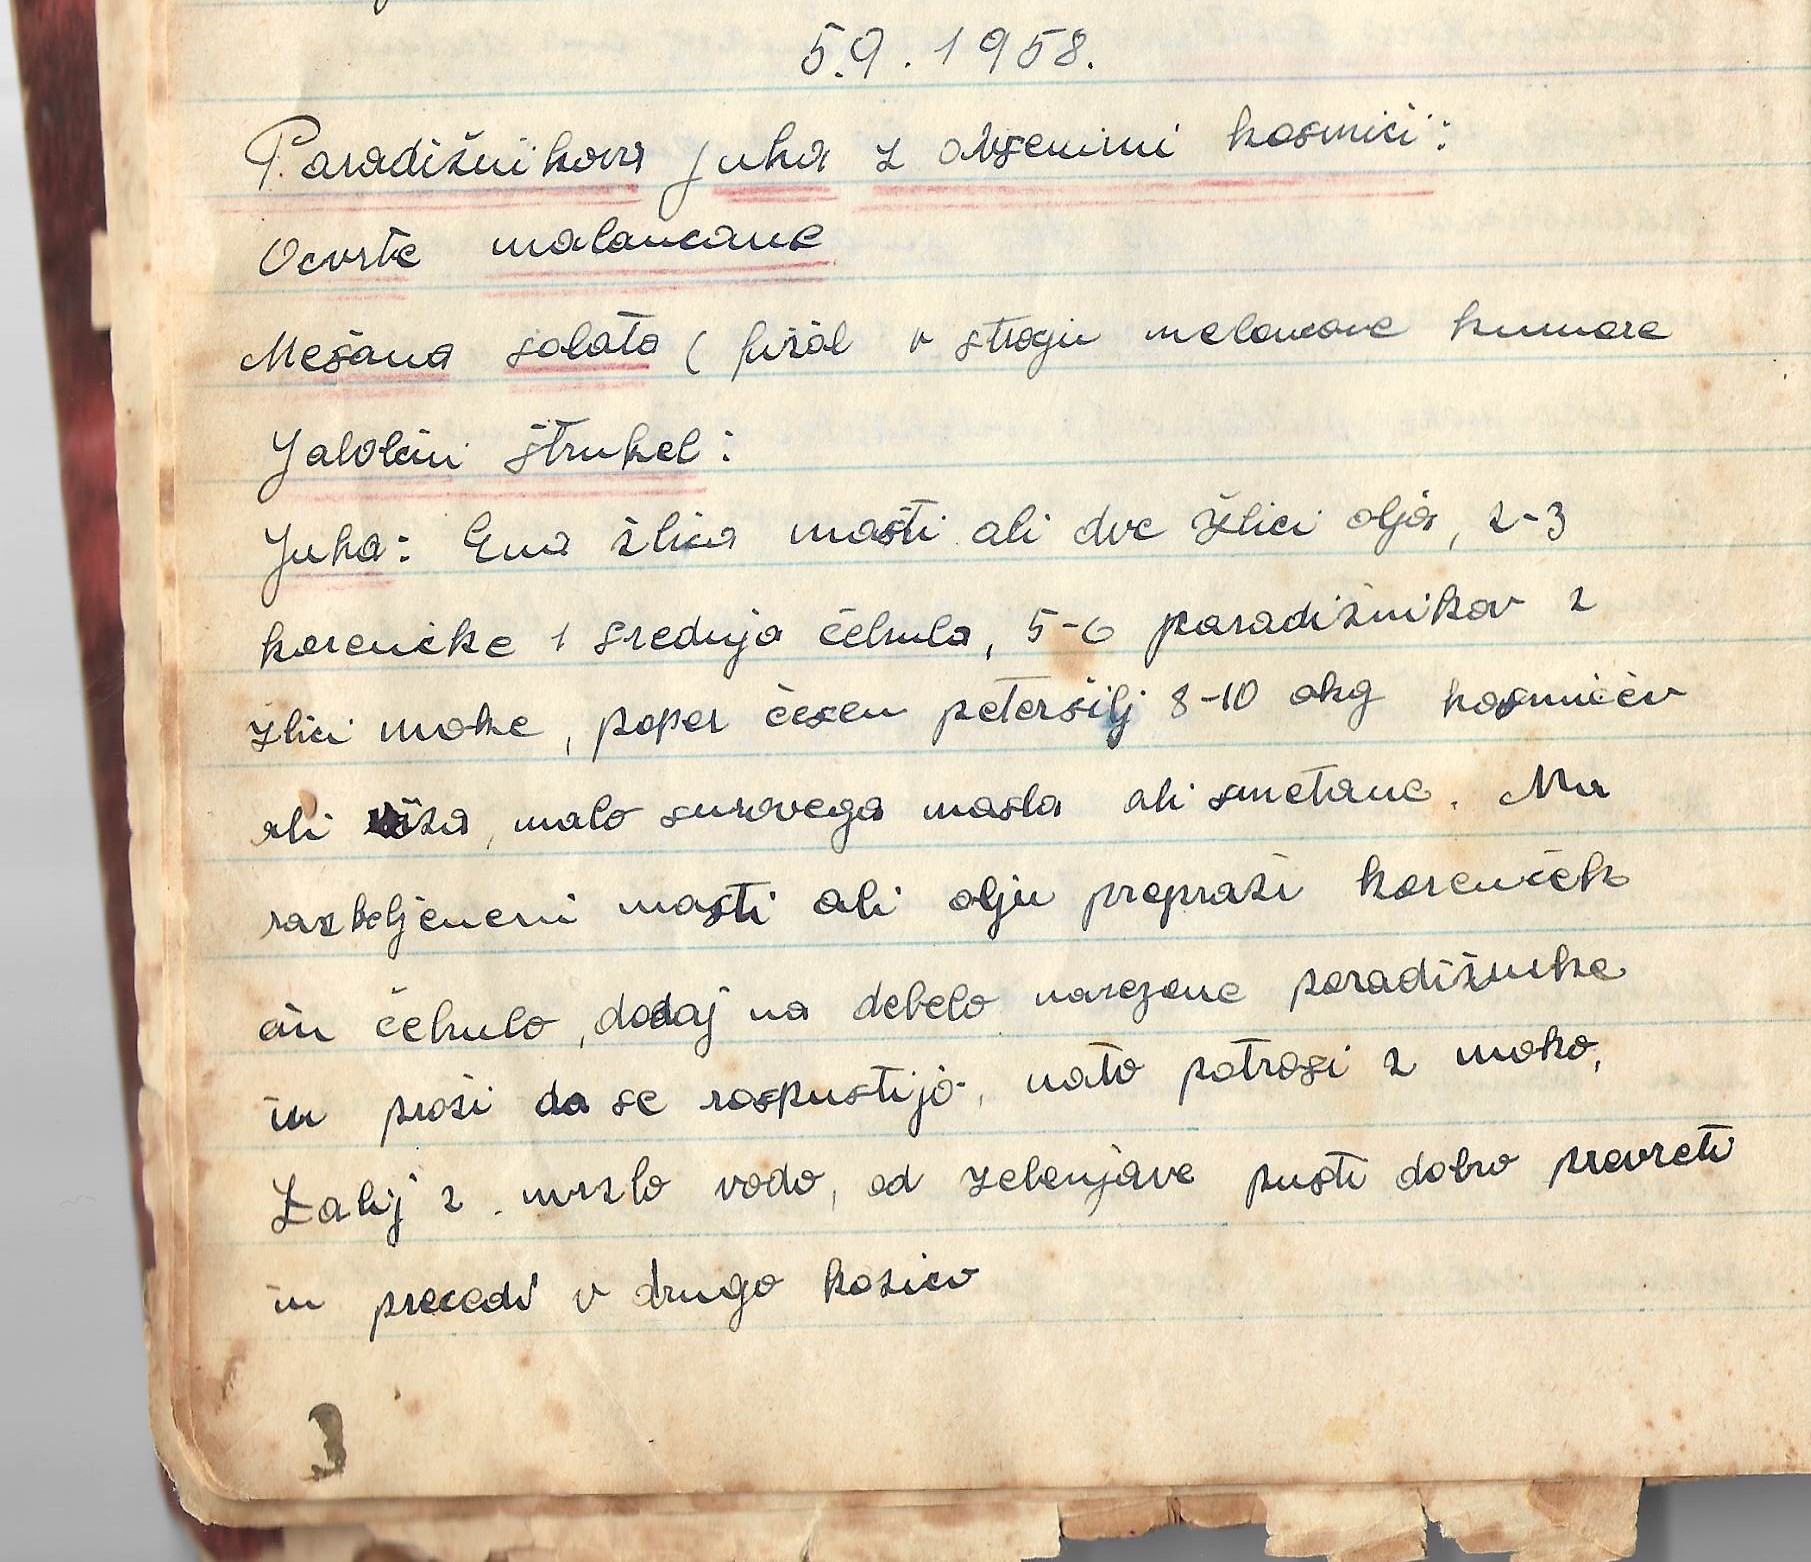 5.9.1958.
Paradižnikova juha z ovsenimi kosmiči:
Ocvrte malancane
Mešana solata ( fižol v stročju melancane kumare
Jabolčni štrukel:
Juha: Ena žlica masti ali dve žlici olja, 2-3
korenčke 1 srednja čebula, 5-6 paradižnikov 2
žlici moke, poper česen peteršilj 8-10 dkg kosmičev
ali riža, malo surovega masla ali smetane. Na
razbeljeneni masti ali olju prepraži korenček
in čebulo, dodaj na debelo narezane paradižnike
in praži da se raspustijo, nato potrosi z moko,
Zalij z mrzlo vodo, od zelenjave pusti dobro prevreti
in precedi v drugo kozico